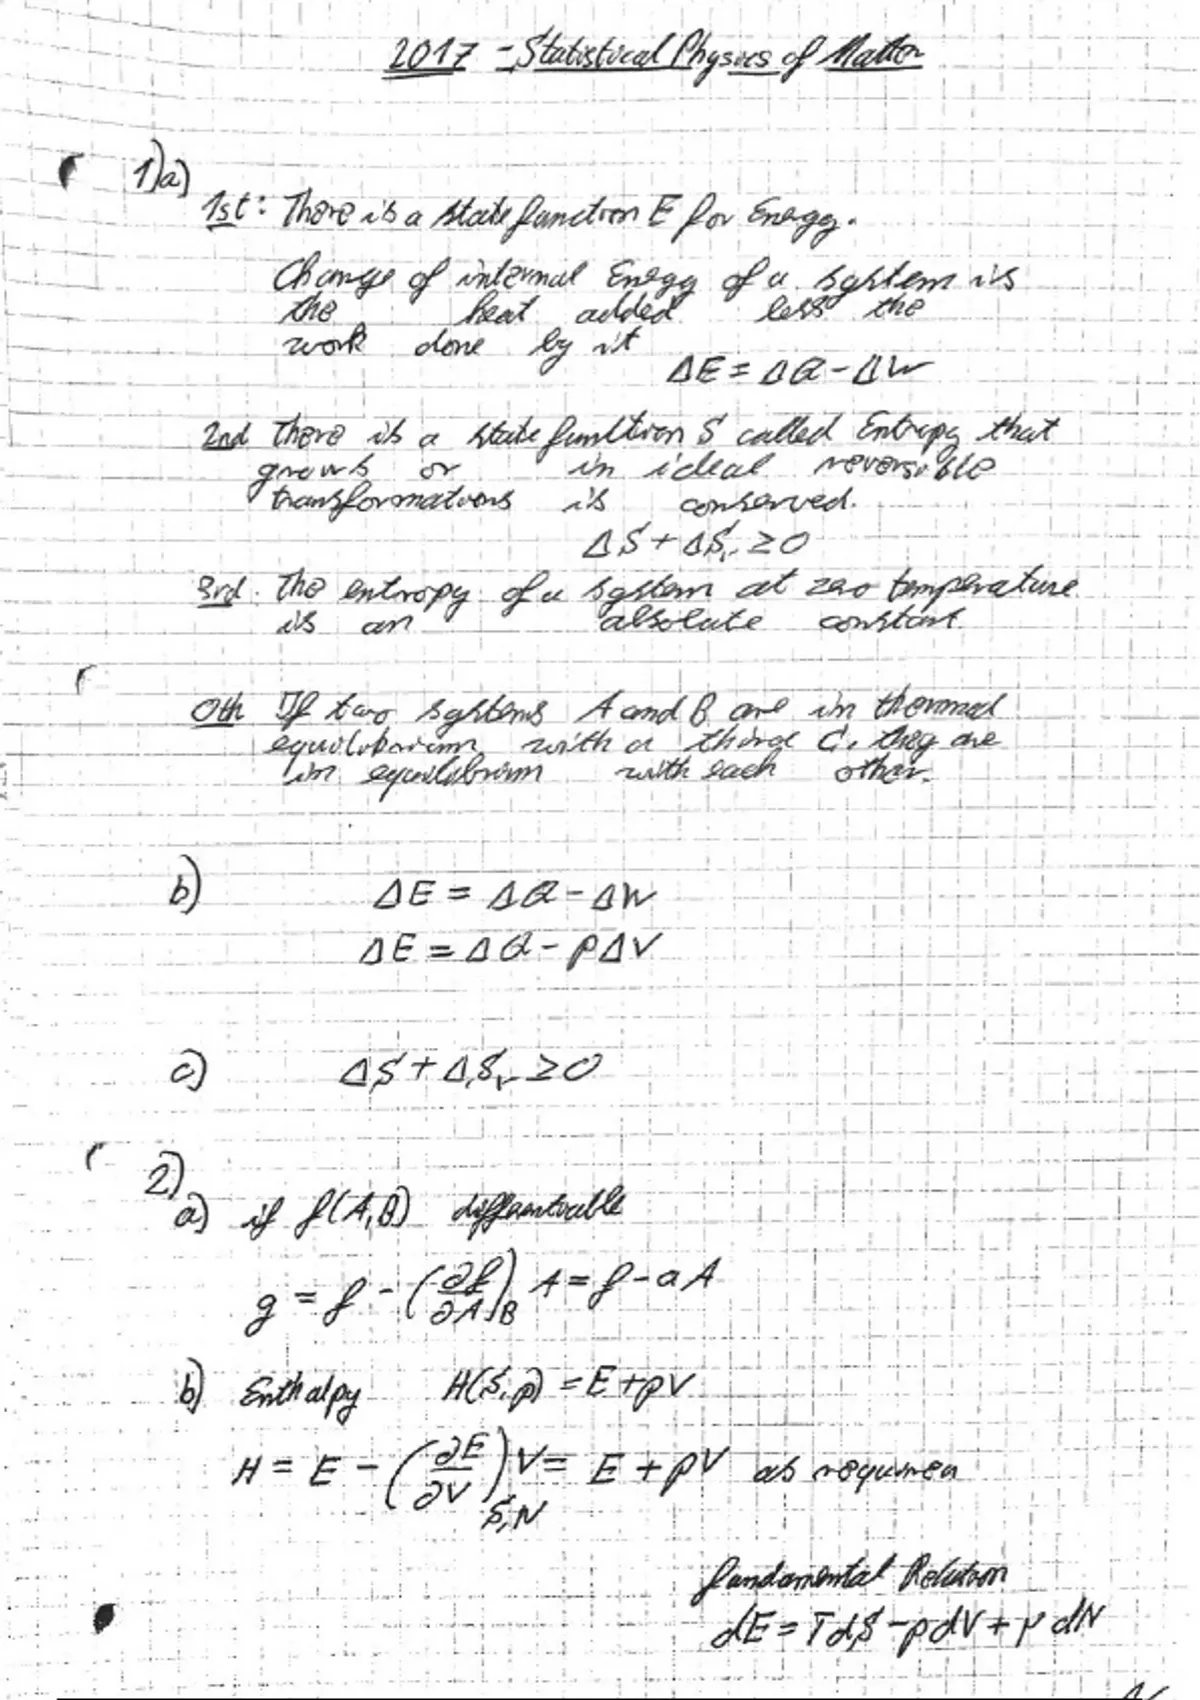 2017 - Statistical Physics of Matter
1)a)
1st: There is a state function E for Energy.
Change of internal Energy of a system is
the heat added less the
work done by it
ΔE = ΔQ - ΔW
2nd There is a state function S called Entropy that
grows or in ideal reversible
transformations is conserved.
ΔS + ΔSr ≥ 0
3rd. The entropy of a system at zero temperature
is an absolute constant
0th If two systems A and B are in thermal
equilibrium with a third C, they are
in equilibrium with each other.
b) ΔE = ΔQ - ΔW
ΔE = ΔQ - pΔV
c) ΔS + ΔSr ≥ 0
2)
a) if f(A,B) differentiable
g = f - (∂f/∂A)B A = f - aA
b) Enthalpy H(S,p) = E + pV
H = E - (∂E/∂V)S,N V = E + pV as required
fundamental Relation
dE = TdS - pdV + μdN